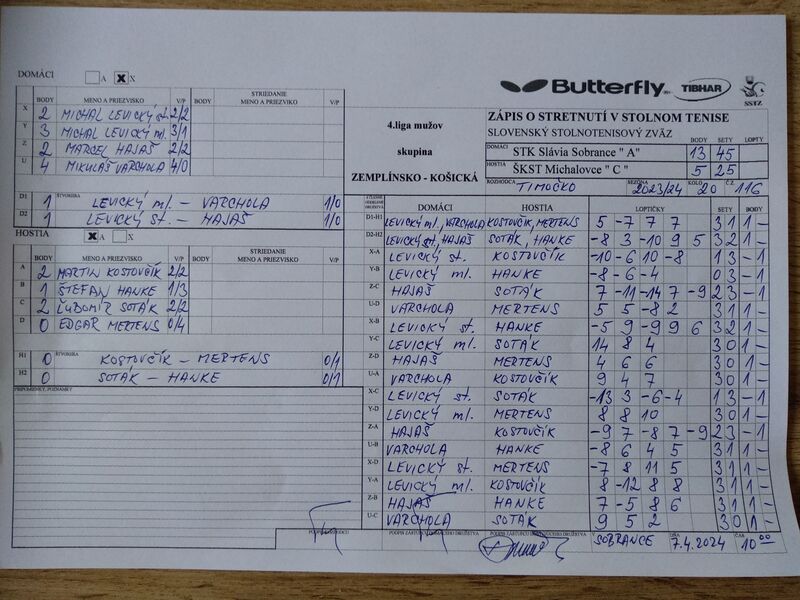 DOMÁCI A X X
BODY MENO A PRIEZVISKO V/P BODY STRIEDANIE MENO A PRIEZVIKO V/P
X 2 MICHAL LEVICKÝ st. 2/2
Y 3 MICHAL LEVICKÝ ml. 3/1
Z 2 MARCEL HAJAŠ 2/2
U 4 MIKULÁŠ VARCHOLA 4/0
D1 1 ŠTVORHRA LEVICKÝ ml. – VARCHOLA 1/0
D2 1 LEVICKÝ st. – HAJAŠ 1/0
HOSTIA X A X
BODY MENO A PRIEZVISKO V/P BODY STRIEDANIE MENO A PRIEZVISKO V/P
A 2 MARTIN KOSTOVČÍK 2/2
B 1 ŠTEFAN HANKE 1/3
C 2 ĽUBOMÍR SOTÁK 2/2
D 0 EDGAR MERTENS 0/4
H1 0 ŠTVORHRA KOSTOVČÍK – MERTENS 0/1
H2 0 SOTÁK – HANKE 0/1
PRIPOMIENKY, POZNÁMKY
Butterfly TIBHAR SSTZ
4.liga mužov
skupina
ZEMPLÍNSKO - KOŠICKÁ
ZÁPIS O STRETNUTÍ V STOLNOM TENISE
SLOVENSKÝ STOLNOTENISOVÝ ZVÄZ
BODY SETY LOPTY
DOMÁCI STK Slávia Sobrance "A" 13 45
HOSTIA ŠKST Michalovce "C" 5 25
ROZHODCA TIMOČKO SEZÓNA 2023/24 KOLO 20 Č.Z. 116
DOMÁCI HOSTIA LOPTIČKY SETY BODY
D1-H1 LEVICKÝ ml., VARCHOLA KOSTOVČÍK, MERTENS 5 -7 7 7 3 1 1 –
D2-H2 LEVICKÝ st., HAJAŠ SOTÁK, HANKE -8 3 -10 9 5 3 2 1 –
X-A LEVICKÝ st. KOSTOVČÍK -10 -6 10 -8 1 3 – 1
Y-B LEVICKÝ ml. HANKE -8 -6 -4 0 3 – 1
Z-C HAJAŠ SOTÁK 7 -11 -14 7 -9 2 3 – 1
U-D VARCHOLA MERTENS 5 5 -8 2 3 1 1 –
X-B LEVICKÝ st. HANKE -5 9 -9 9 6 3 2 1 –
Y-C LEVICKÝ ml. SOTÁK 14 8 4 3 0 1 –
Z-D HAJAŠ MERTENS 4 6 6 3 0 1 –
U-A VARCHOLA KOSTOVČÍK 9 4 7 3 0 1 –
X-C LEVICKÝ st. SOTÁK -13 3 -6 -4 1 3 – 1
Y-D LEVICKÝ ml. MERTENS 8 8 10 3 0 1 –
Z-A HAJAŠ KOSTOVČÍK -9 7 -8 7 -9 2 3 – 1
U-B VARCHOLA HANKE -8 6 4 5 3 1 1 –
X-D LEVICKÝ st. MERTENS -7 8 11 5 3 1 1 –
Y-A LEVICKÝ ml. KOSTOVČÍK 8 -12 8 8 3 1 1 –
Z-B HAJAŠ HANKE 7 -5 8 6 3 1 1 –
U-C VARCHOLA SOTÁK 9 5 2 3 0 1 –
V SOBRANCE DŇA 7.4.2024 ČAS 10 00